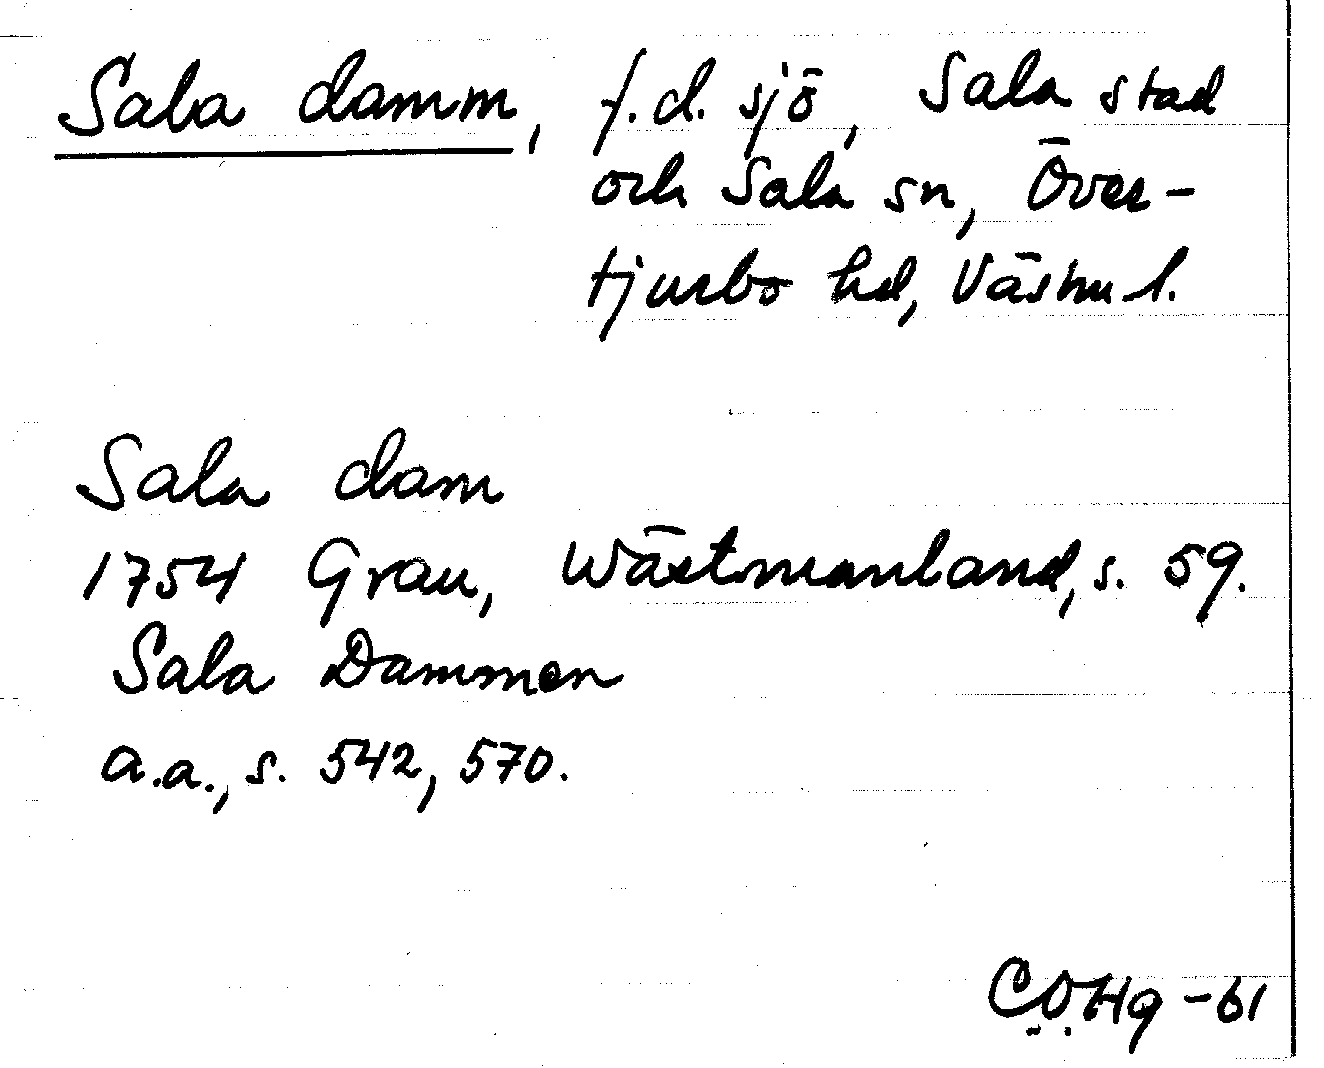 Sala damm, f.d. sjö, Sala stad
och Sala sn, Över-
tjurbo hd, Västm l.
Sala dam
1754 Grau, Wästmanland, s. 59.
Sala Dammen
a.a., s. 542, 570.
C.O.Hg -61